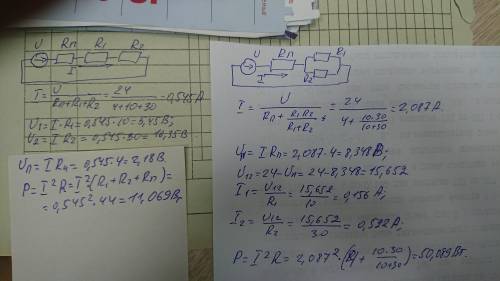 U Rп R₁ R₂
I
I = U/(Rп+R₁+R₂) = 24/(4+10+30) = 0,545 А
U₁ = I·R₁ = 0,545·10 = 5,45 В;
U₂ = I R₂ = 0,545·30 = 16,35 В
Uп = I Rп = 0,545·4 = 2,18 В
P = I²R = I²(R₁+R₂+Rп) =
= 0,545²·44 = 11,069 Вт
U Rп R₁
I R₂
I = U/(Rп + R₁R₂/(R₁+R₂)) = 24/(4 + 10·30/(10+30)) = 2,087 А.
Uп = I Rп = 2,087·4 = 8,348 В;
U₁₂ = 24-Uп = 24-8,348 = 15,652
I₁ = U₁₂/R₁ = 15,652/10 = 0,156 А;
I₂ = U₁₂/R₂ = 15,652/30 = 0,522 А;
P = I²R = 2,087²·( + 10·30/(10+30)) = 50,089 Вт.